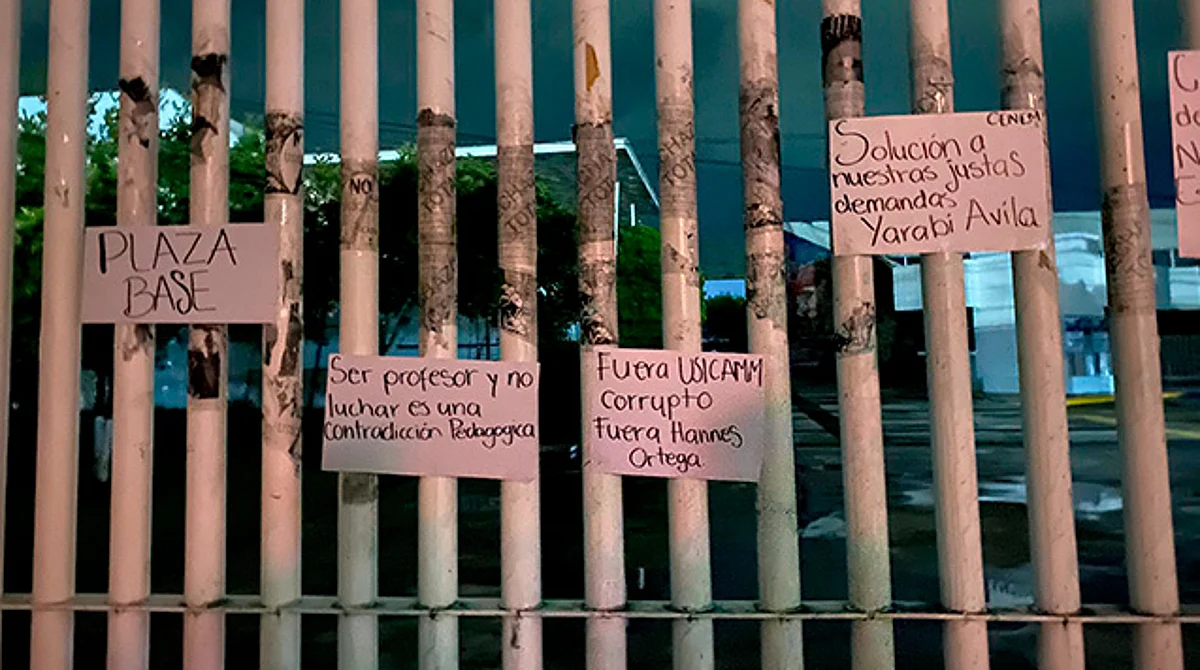 PLAZA
BASE
NO
Ser profesor y no
luchar es una
contradicción Pedagogica
Fuera USICAMM
corrupto
Fuera Hannes
Ortega.
CENEM
Solución a
nuestras justas
demandas
Yarabi Avila